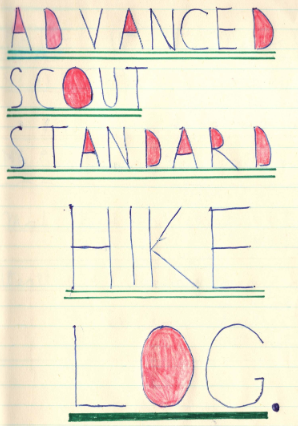 ADVANCED
SCOUT
STANDARD
HIKE
LOG.